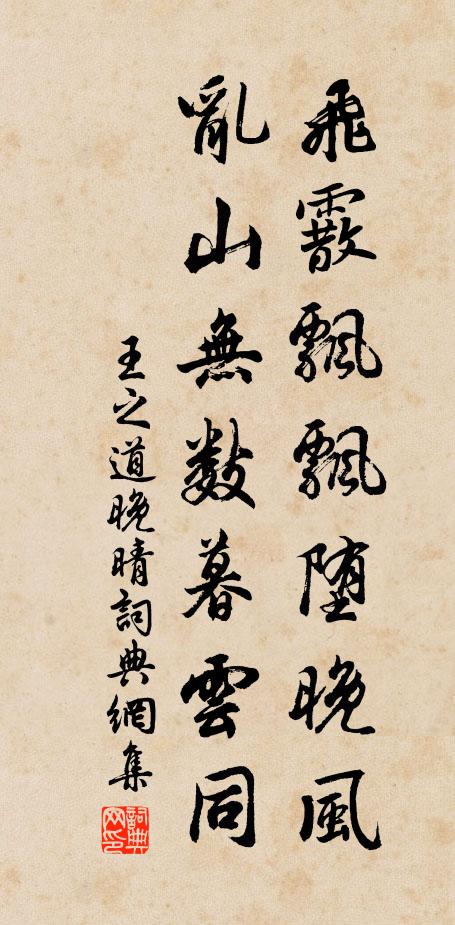 飛霰飄飄墮晚風
亂山無數暮雲同
王之道晚晴詞典網集
詞典網印